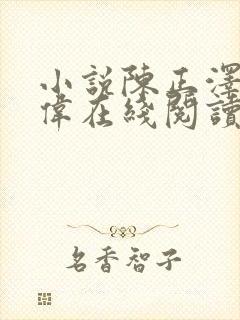 小説陳正澤
偉在綫閱讀
名香智子